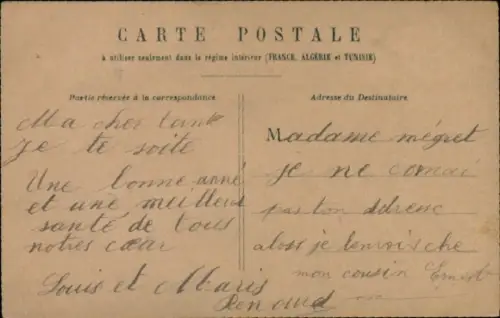 CARTE POSTALE
à utiliser seulement dans le régime intérieur (FRANCE, ALGÉRIE et TUNISIE)
Partie réservée à la correspondance
Ma cher tante
Je te soite
Une bonne anné
et une meilleur
santé de tous
notres cœur
Louis et Maris
Renaud
Adresse du Destinataire
Madame mégret
je ne connai
pas ton adresse
alors je
mon cousin Ernest